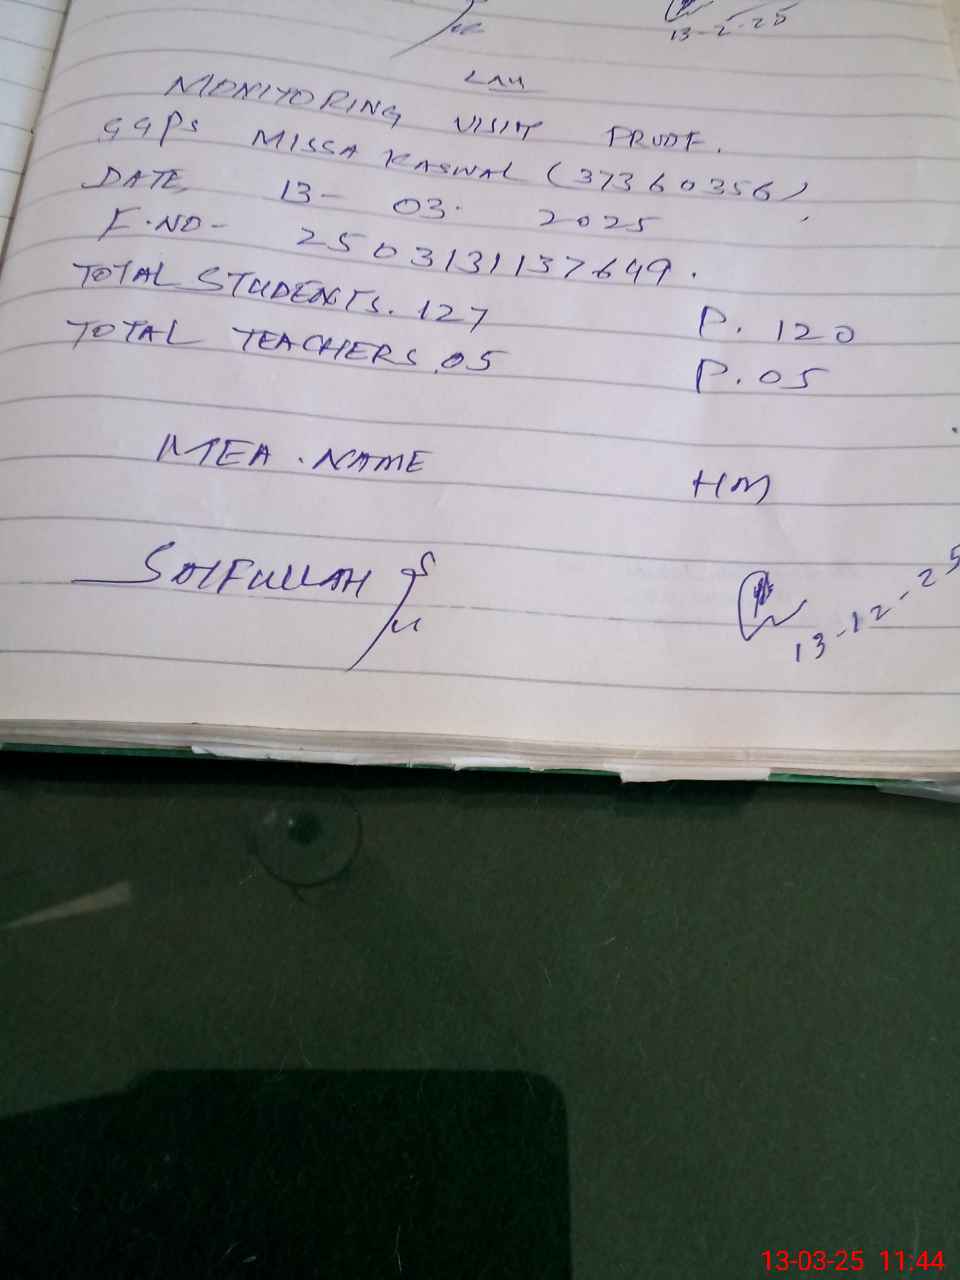 13-2-25
LAM
MONITORING VISIT PROOF.
GGPS MISSA KASWAL (37360356)
DATE, 13- 03. 2025
F.NO- 2503131137649.
TOTAL STUDENTS. 127 P. 120
TOTAL TEACHERS. 05 P. 05
MEA. NAME HM
SAIFULLAH
13-12-25
13-03-25 11:44